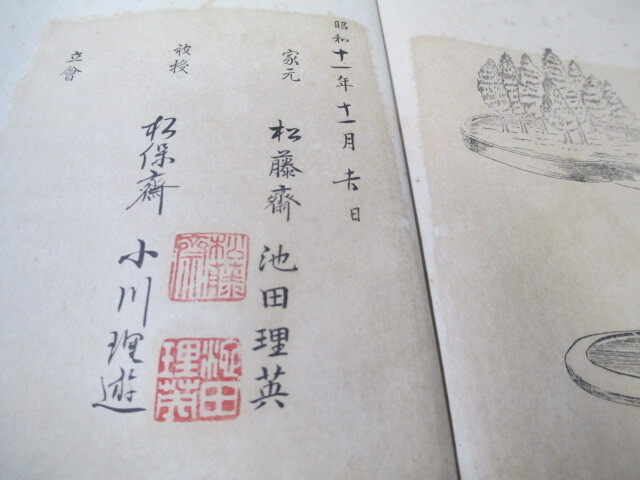 昭和十一年十一月吉日
家元
松藤齋 池田理英
松藤齋
池田理英
授
松保齋 小川理遊
立會